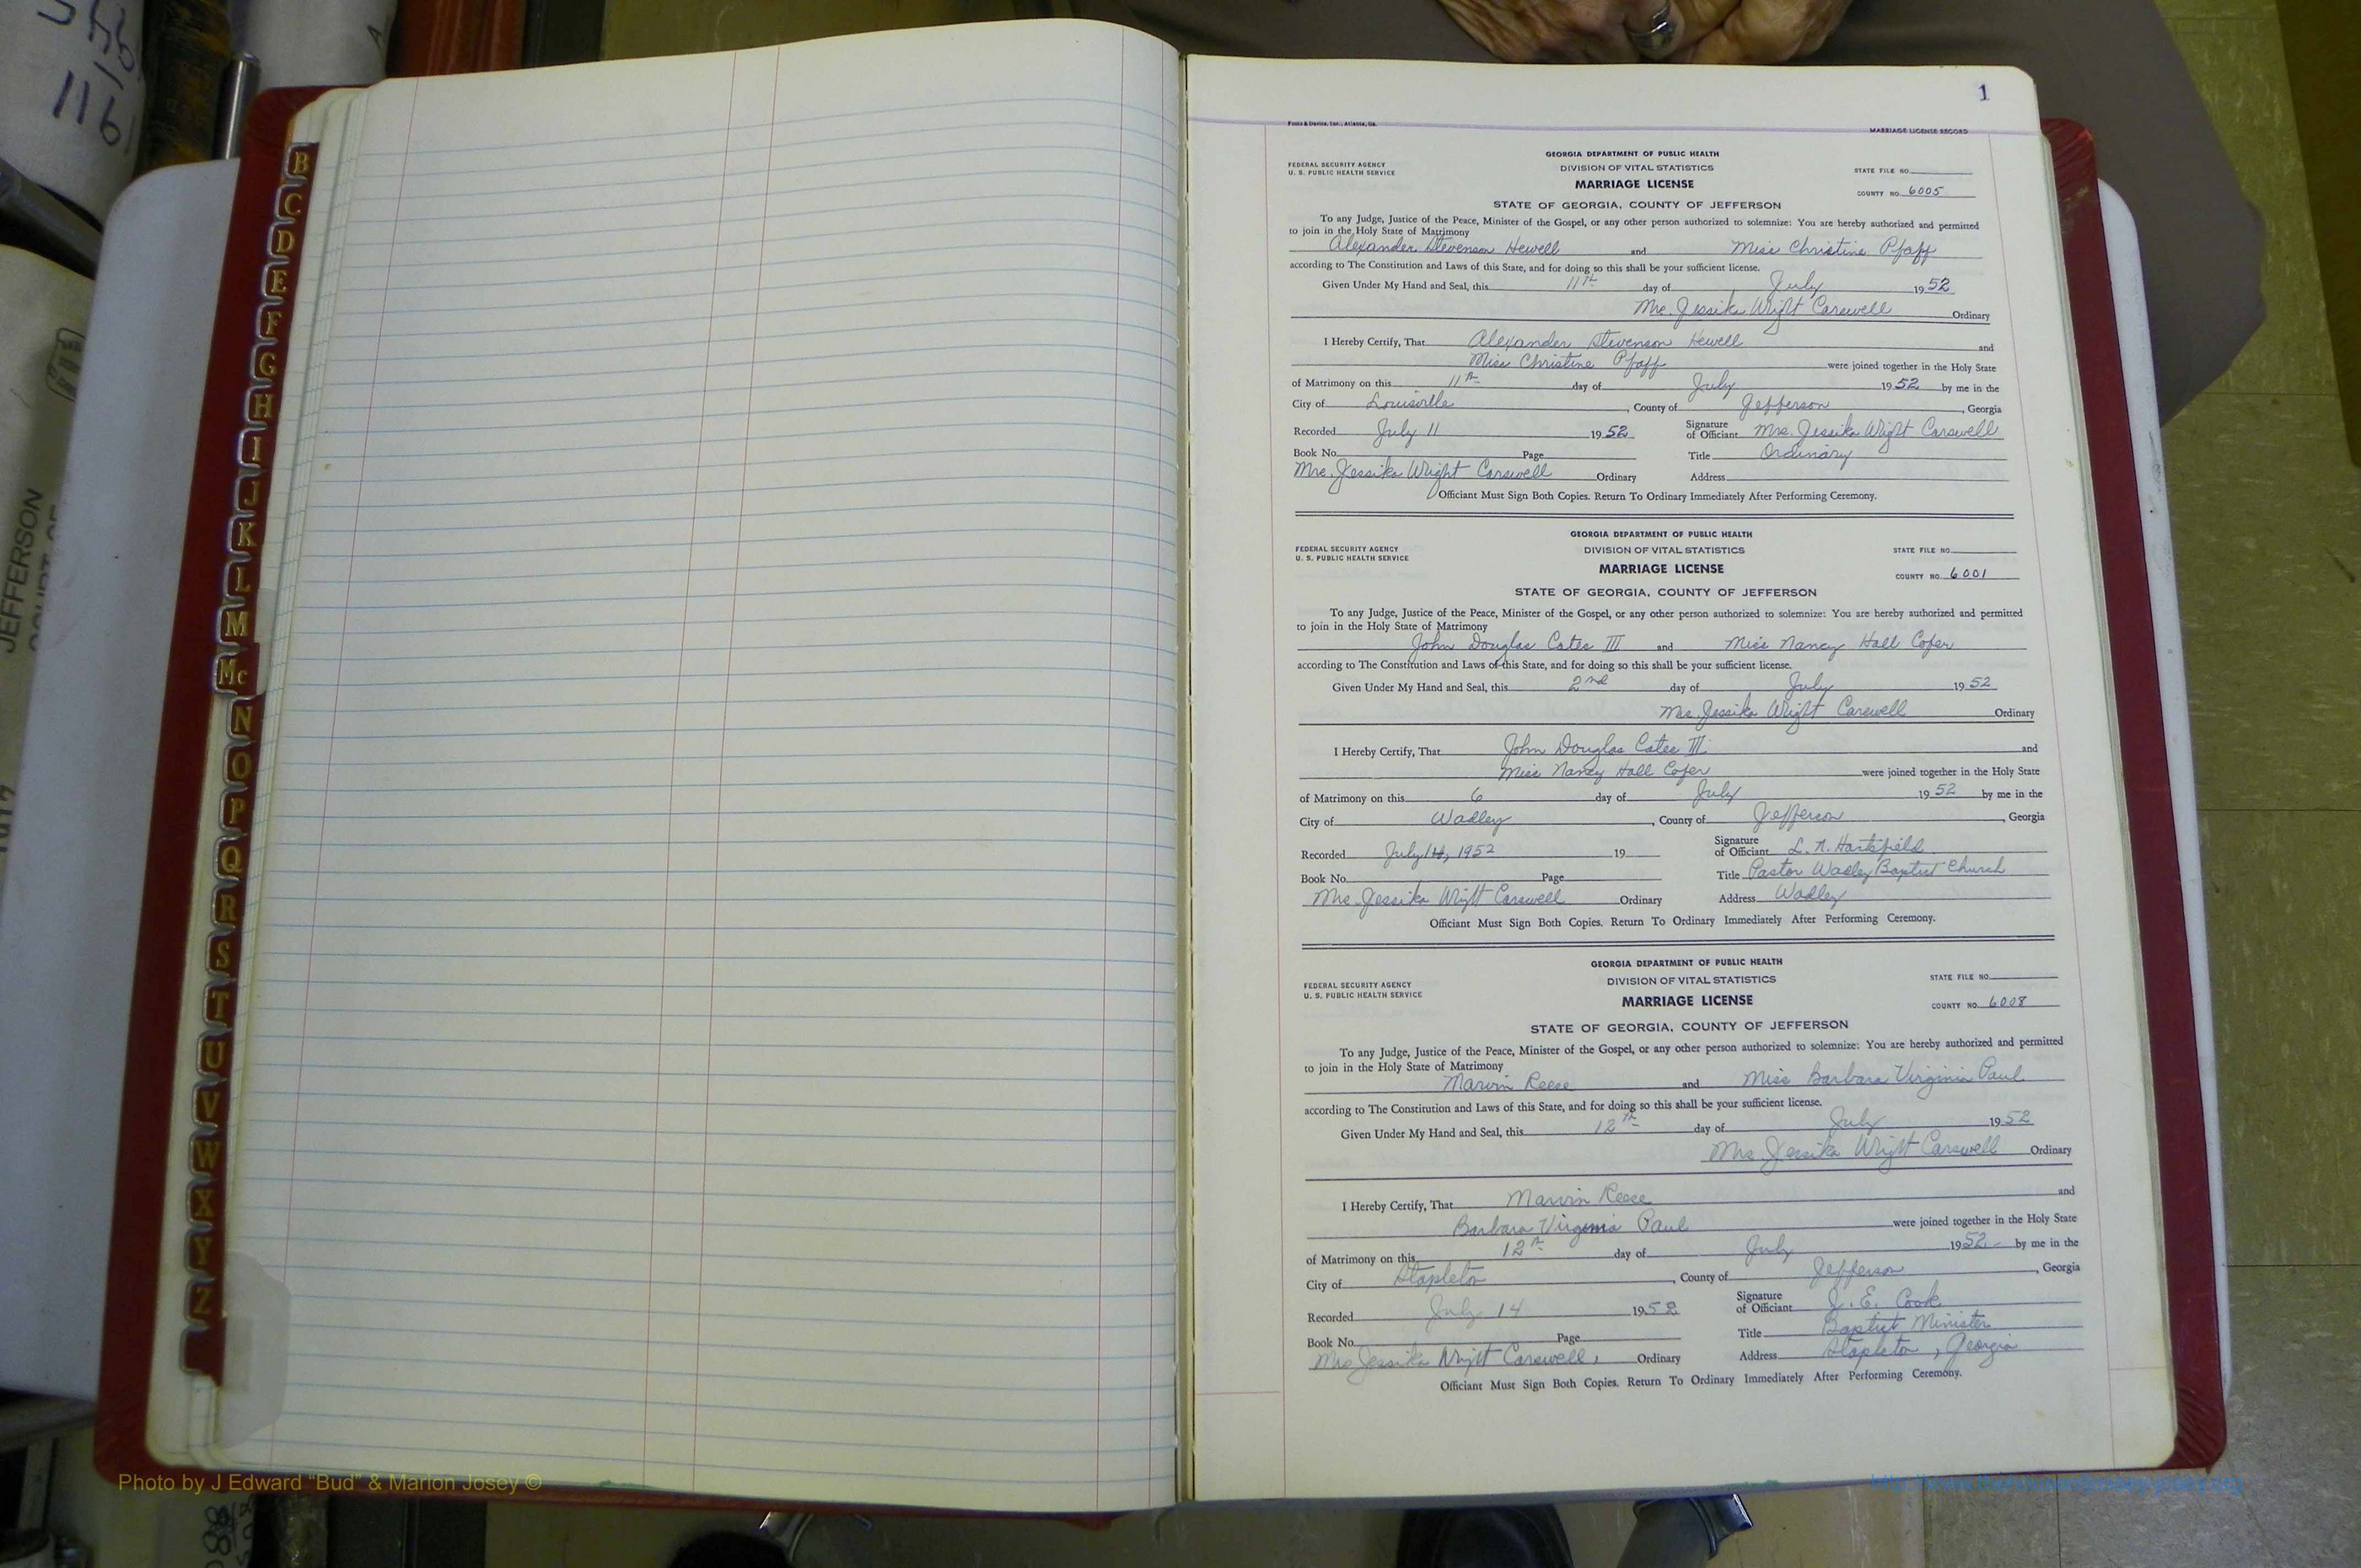 B
C
D
E
F
G
H
I
J
K
L
M
Mc
N
O
P
Q
R
S
T
U
V
W
X
Y
Z
JEFFERSON
1
Foote & Davies, Inc., Atlanta, Ga.
MARRIAGE LICENSE RECORD
GEORGIA DEPARTMENT OF PUBLIC HEALTH
FEDERAL SECURITY AGENCY DIVISION OF VITAL STATISTICS STATE FILE NO.
U. S. PUBLIC HEALTH SERVICE
MARRIAGE LICENSE COUNTY NO. 6005
STATE OF GEORGIA, COUNTY OF JEFFERSON
To any Judge, Justice of the Peace, Minister of the Gospel, or any other person authorized to solemnize: You are hereby authorized and permitted
to join in the Holy State of Matrimony
Alexander Stevenson Hewell and Miss Christine Pfaff
according to The Constitution and Laws of this State, and for doing so this shall be your sufficient license.
Given Under My Hand and Seal, this 11th day of July 1952
Mrs. Jessika Wright Carswell Ordinary
I Hereby Certify, That Alexander Stevenson Hewell and
Miss Christine Pfaff were joined together in the Holy State
of Matrimony on this 11th day of July 1952 by me in the
City of Louisville, County of Jefferson, Georgia
Recorded July 11 1952 Signature of Officiant Mrs. Jessika Wright Carswell
Book No. Page Title Ordinary
Mrs. Jessika Wright Carswell Ordinary Address
Officiant Must Sign Both Copies. Return To Ordinary Immediately After Performing Ceremony.
GEORGIA DEPARTMENT OF PUBLIC HEALTH
FEDERAL SECURITY AGENCY DIVISION OF VITAL STATISTICS STATE FILE NO.
U. S. PUBLIC HEALTH SERVICE
MARRIAGE LICENSE COUNTY NO. 6001
STATE OF GEORGIA, COUNTY OF JEFFERSON
To any Judge, Justice of the Peace, Minister of the Gospel, or any other person authorized to solemnize: You are hereby authorized and permitted
to join in the Holy State of Matrimony
John Douglas Cates III and Miss Nancy Hall Cofer
according to The Constitution and Laws of this State, and for doing so this shall be your sufficient license.
Given Under My Hand and Seal, this 2nd day of July 1952
Mrs. Jessika Wright Carswell Ordinary
I Hereby Certify, That John Douglas Cates III and
Miss Nancy Hall Cofer were joined together in the Holy State
of Matrimony on this 6 day of July 1952 by me in the
City of Wadley, County of Jefferson, Georgia
Recorded July 14, 1952 19 Signature of Officiant L. N. Hartsfield
Book No. Page Title Pastor Wadley Baptist Church
Mrs. Jessika Wright Carswell Ordinary Address Wadley
Officiant Must Sign Both Copies. Return To Ordinary Immediately After Performing Ceremony.
GEORGIA DEPARTMENT OF PUBLIC HEALTH
FEDERAL SECURITY AGENCY DIVISION OF VITAL STATISTICS STATE FILE NO.
U. S. PUBLIC HEALTH SERVICE
MARRIAGE LICENSE COUNTY NO. 6008
STATE OF GEORGIA, COUNTY OF JEFFERSON
To any Judge, Justice of the Peace, Minister of the Gospel, or any other person authorized to solemnize: You are hereby authorized and permitted
to join in the Holy State of Matrimony
Marvin Reese and Miss Barbara Virginia Paul
according to The Constitution and Laws of this State, and for doing so this shall be your sufficient license.
Given Under My Hand and Seal, this 12th day of July 1952
Mrs Jessika Wright Carswell Ordinary
I Hereby Certify, That Marvin Reese and
Barbara Virginia Paul were joined together in the Holy State
of Matrimony on this 12th day of July 1952 by me in the
City of Stapleton, County of Jefferson, Georgia
Recorded July 14 1952 Signature of Officiant J. E. Cook
Book No. Page Title Baptist Minister
Mrs Jessika Wright Carswell, Ordinary Address Stapleton, Georgia
Officiant Must Sign Both Copies. Return To Ordinary Immediately After Performing Ceremony.
Photo by J Edward "Bud" & Marion Josey ©